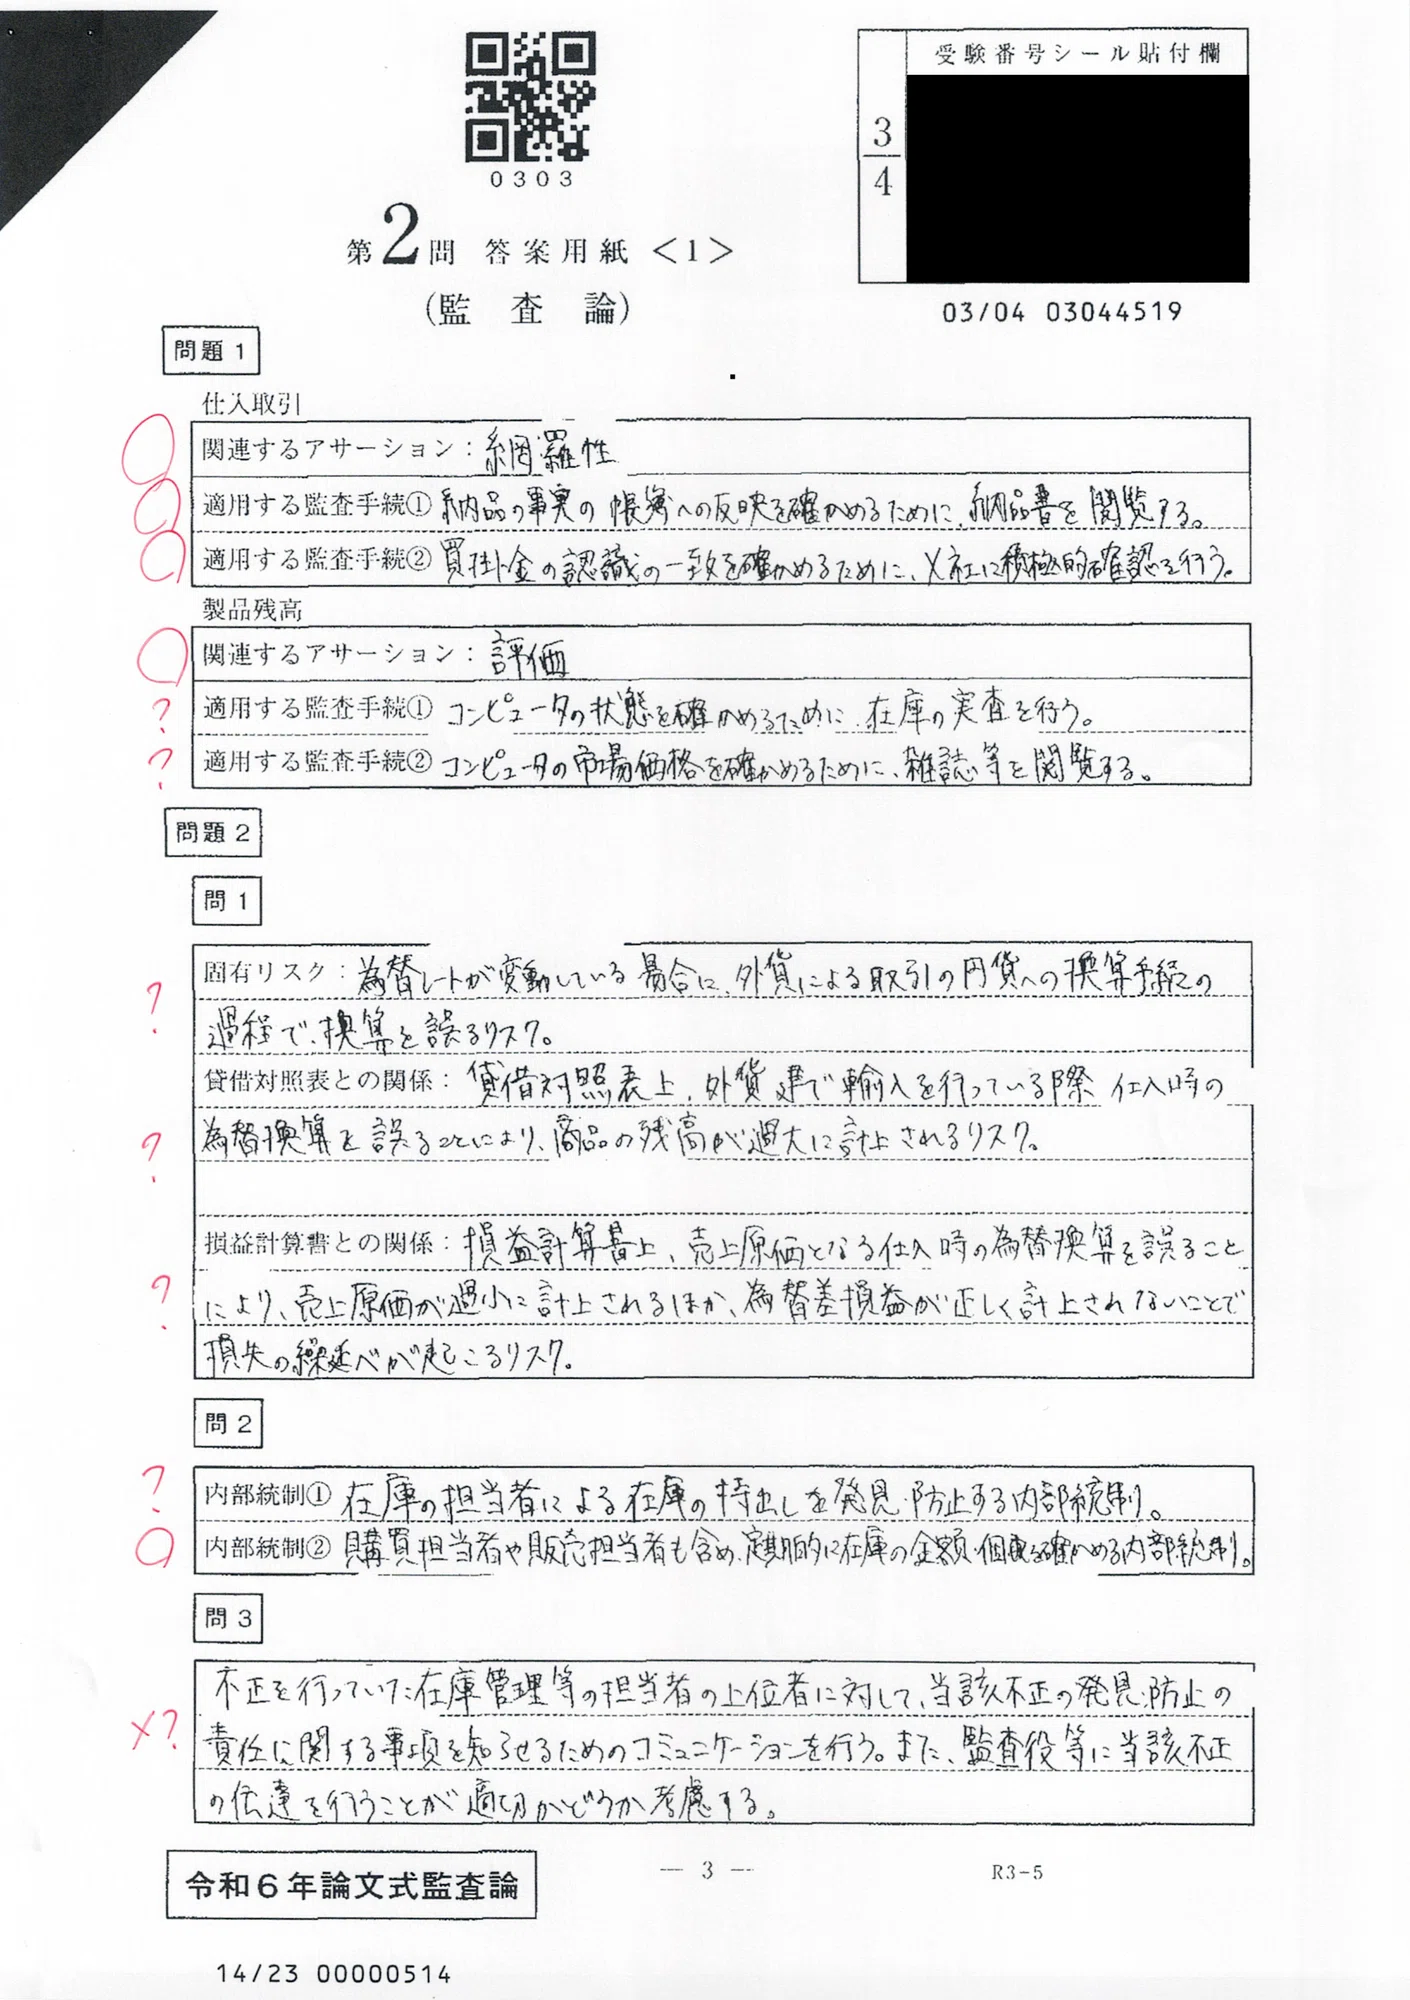 0303
受験番号シール貼付欄
3/4
第2問 答案用紹<1>
(監査論)
03/04 03044519
問題1
仕入取引
関連するアサーション：網羅性
適用する監査手続① 納品の事実の帳簿への反映を確かめるために、納品書を閲覧する。
適用する監査手続② 買掛金の認識の一致を確かめるために、X社に積極的確認を行う。
製品残高
関連するアサーション：評価
適用する監査手続① コンピュータの状態を確かめるために、在庫の実査を行う。
適用する監査手続② コンピュータの市場価格を確かめるために、雑誌等を閲覧する。
問題2
問1
固有リスク：為替レートが変動している場合に、外貨による取引の円貨への換算手続の
過程で、換算を誤るリスク。
貸借対照表との関係：貸借対照表上、外貨建で輸入を行っている際、仕入時の
為替換算を誤ることにより、商品の残高が過大に計上されるリスク。
損益計算書との関係：損益計算書上、売上原価となる仕入時の為替換算を誤ること
により、売上原価が過小に計上されるほか、為替差損益が正しく計上されないことで
損失の繰延べが起こるリスク。
問2
内部統制① 在庫の担当者による在庫の持出しを発見・防止する内部統制。
内部統制② 購買担当者や販売担当者も含め、定期的に在庫の金額・個数を確かめる内部統制。
問3
不正を行っていた在庫管理等の担当者の上位者に対して、当該不正の発見・防止の
責任に関する事項を知らせるためのコミュニケーションを行う。また、監査役等に当該不正
の伝達を行うことが適切かどうか考慮する。
— 3 —
R3-5
令和6年論文式監査論
14/23 00000514